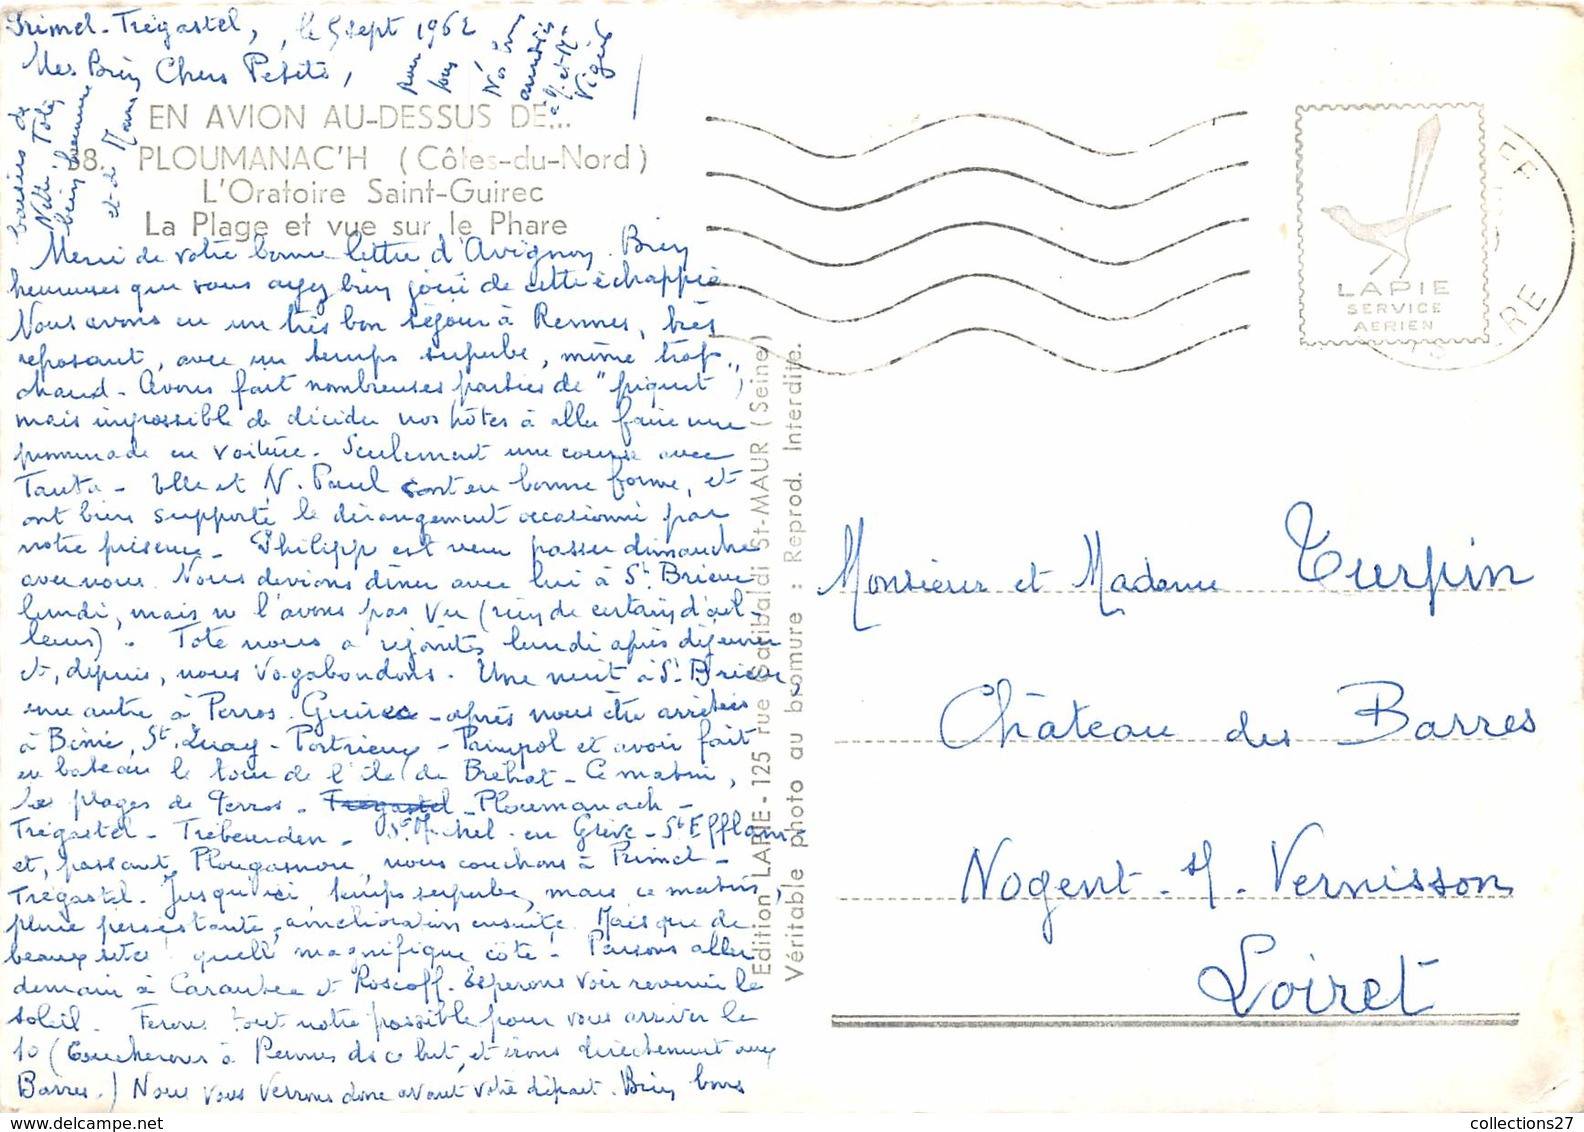 Primel-Trégastel, le 5 sept 1962
Mes Bien Chers Petits,
Pour
tous
Nos bons
amitiés
à M. et Mme
Vigié
baisers de
Nelli, Tote,
bien heureuse
et de Mams
EN AVION AU-DESSUS DE...
38. PLOUMANAC'H (Côtes-du-Nord)
L'Oratoire Saint-Guirec
La Plage et vue sur le Phare
Merci de votre bonne lettre d'Avignon. Bien
heureuses que vous ayez bien joui de cette échappée
Nous avons eu un très bon séjour à Rennes, très
reposant, avec un temps superbe, même trop
chaud - Avons fait nombreuses parties de "piquet",
mais impossible de décider nos hôtes à aller faire une
promenade en voiture. Seulement une course avec
Tanta - Elle et N. Paul sont en bonne forme, et
ont bien supporté le dérangement occasionné par
notre présence - Philippe est venu passer dimanche
avec nous. Nous devions dîner avec lui à St. Brieuc
lundi, mais ne l'avons pas vu (rien de certain d'ail-
leurs). Tote nous a rejointes lundi après déjeuner
et, depuis, nous vagabondons. Une nuit à St. Brieuc,
une autre à Perros-Guirec - après nous être arrêtées
à Binic, St. Quay - Portrieux - Paimpol et avoir fait
en bateau le tour de l'île de Bréhat - Ce matin,
les plages de Perros - Trégastel - Ploumanach -
Trégastel - Trébeurden - St Michel-en Grève - St Efflam -
et, passant Plougasnou, nous couchons à Primel-
Trégastel. Jusqu'ici, temps superbe, mais ce matin,
pluie persistante, amélioration ensuite. Mais que de
beaux sites ! quelle magnifique côte ! Pensons aller
demain à Carantec et Roscoff. Espérons voir revenir le
soleil. Ferons tout notre possible pour vous arriver le
10 (Coucherons à Rennes ds ce but, et irons directement aux
Barres.) Nous vous verrons donc avant votre départ. Bien bons
Edition LAPIE - 125 rue Garibaldi St-MAUR (Seine)
Véritable photo au bromure : Reprod. Interdite.
LAPIE
SERVICE
AERIEN
Monsieur et Madame Turpin
Château des Barres
Nogent-s/-Vernisson
Loiret
collections27